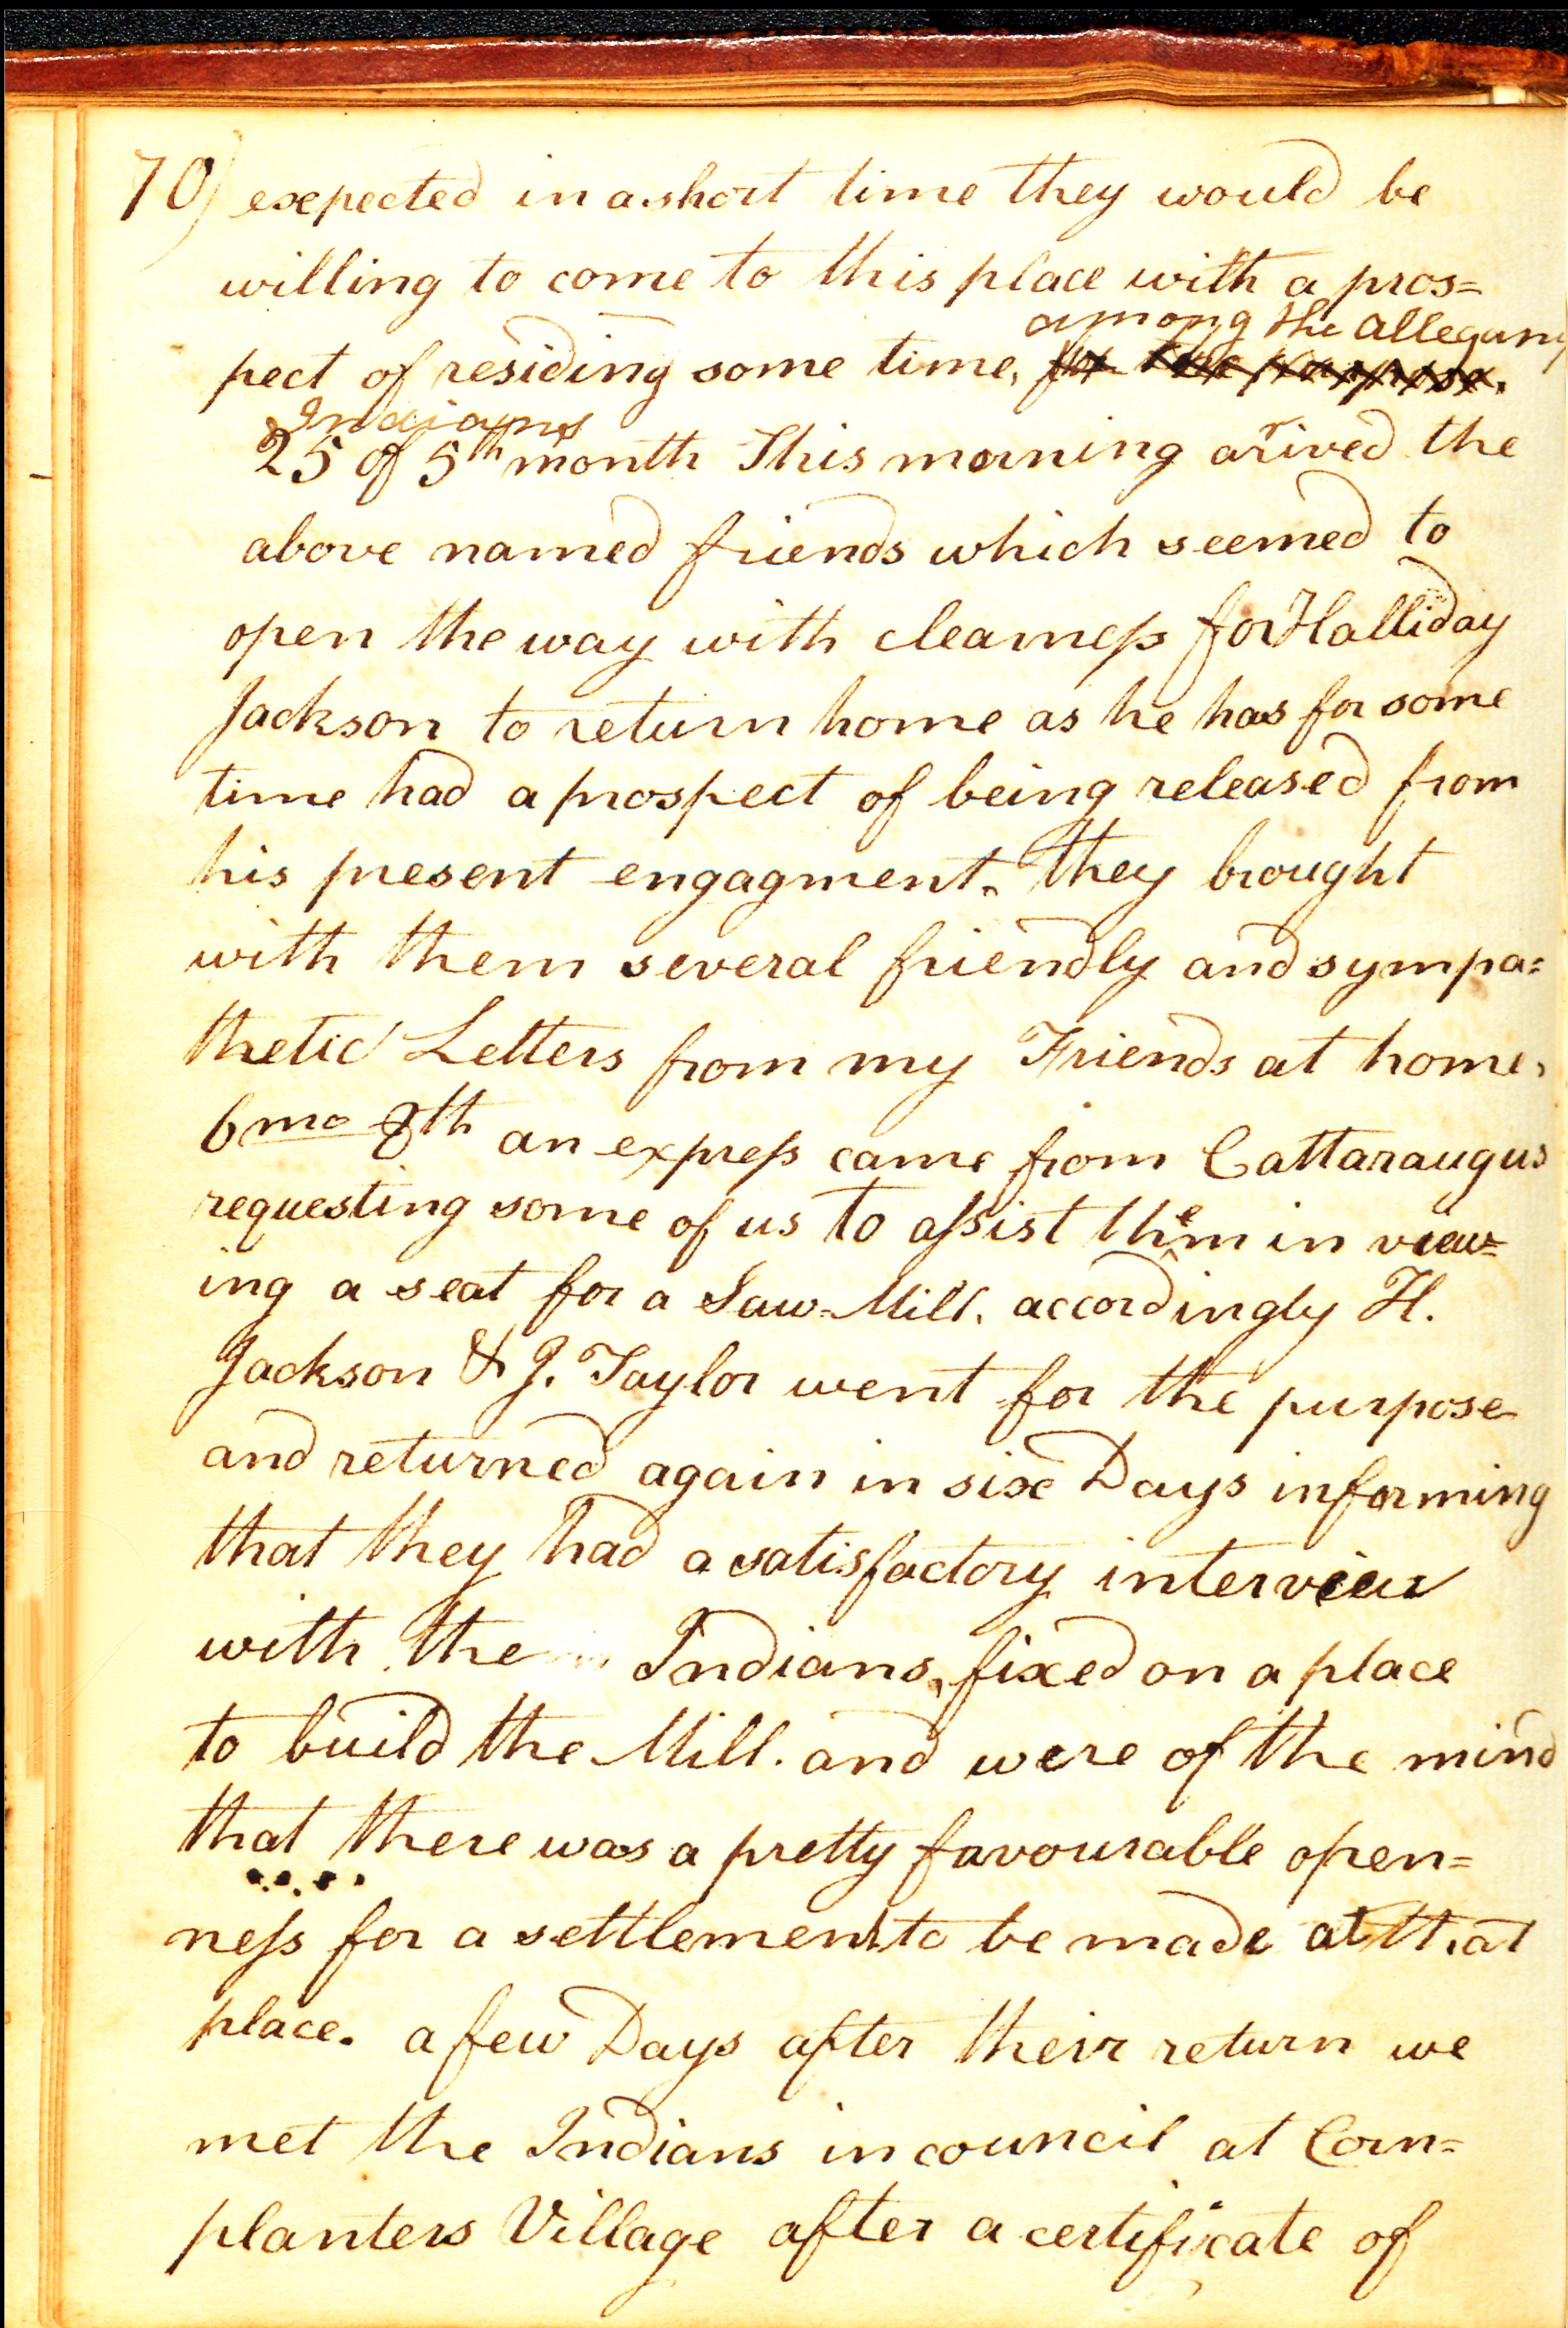 70) expected in a short time they would be
willing to come to this place with a pros=
among the allegany
pect of residing some time, for the purpose.
Indians
25 of 5th month This morning arived the
above named friends which seemed to
open the way with clearneſs for Halliday
Jackson to return home as he has for some
time had a prospect of being released from
his present engagment. they brought
with them several friendly and sympa=
thetic Letters from my Friends at home,
6mo 8th an expreſs came from Cattaraugus
requesting some of us to aſsist them in view=
ing a seat for a Saw=Mill. accordingly H.
Jackson & J. Taylor went for the purpose
and returned again in six Days informing
that they had a satisfactory interview
with the Indians, fixed on a place
to build the Mill. and were of the mind
that there was a pretty favourable open=
neſs for a settlement to be made at that
place. a few Days after their return we
met the Indians in council at Corn=
planters Village after a certificate of